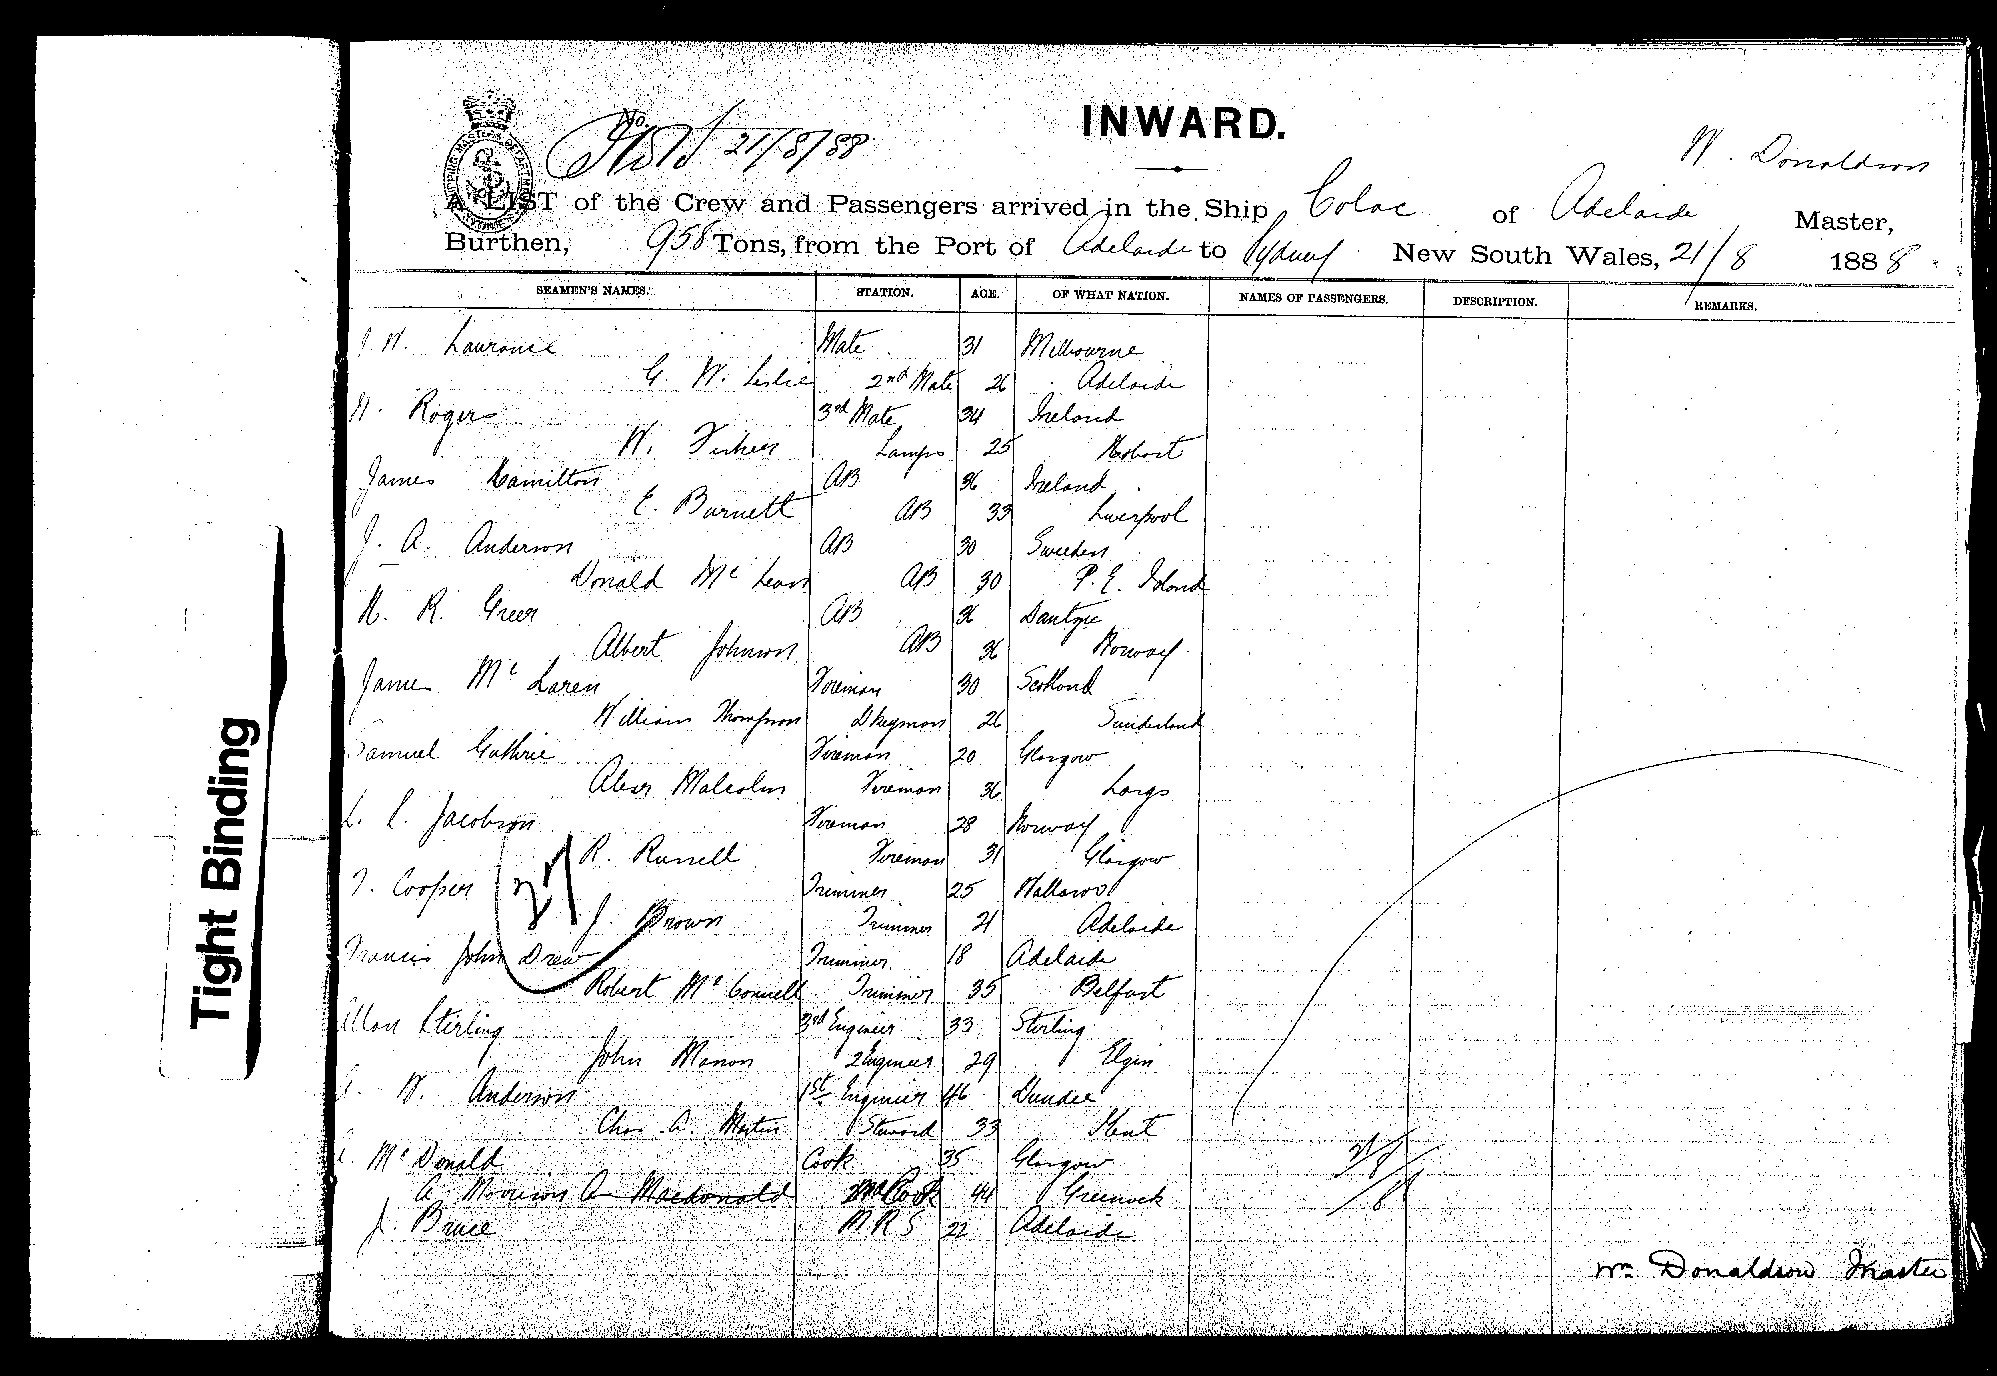 INWARD.
No. 21/8/88
W. Donaldson
A LIST of the Crew and Passengers arrived in the Ship Colac of Adelaide Master,
Burthen, 958 Tons, from the Port of Adelaide to Sydney New South Wales, 21/8 1888
SEAMEN'S NAMES. STATION. AGE. OF WHAT NATION. NAMES OF PASSENGERS. DESCRIPTION. REMARKS.
W. Laurance Mate 31 Melbourne
G. W. Leslie 2nd Mate 26 Adelaide
W. Rogers 3rd Mate 34 Ireland
W. Lamps 25 Hobart
James Hamilton AB 36 Ireland
E. Barnett AB 33 Liverpool
J. A. Anderson AB 30 Sweden
Donald McLean AB 30 P. E. Island
H. R. Greer AB 36
Albert Johnson AB 36 Norway
James McLaren Fireman 30 Scotland
William Thompson Dkeyman 26 Sunderland
Samuel Guthrie Fireman 20 Glasgow
Alexr Malcolm Fireman 36 Largs
Jacobson Fireman 28 Norway
R. Russell Fireman 31 Glasgow
Cooper Trimmer 25 Wallaroo
J. Brown Trimmer 21 Adelaide
Francis John Drew Trimmer 18 Adelaide
Robert McConnell Trimmer 35 Belfast
Allan Sterling 3rd Engineer 33 Sterling
John Manson 2 Engineer 29 Elgin
W. Anderson 1st Engineer 46 Dundee
Chas. A. Martin Steward 33 Kent
McDonald Cook 35 Glasgow
A. Morrison A Macdonald 2nd Cook 44 Greenock
J. Bruce M R S 22 Adelaide
Wm Donaldson Master
Tight Binding